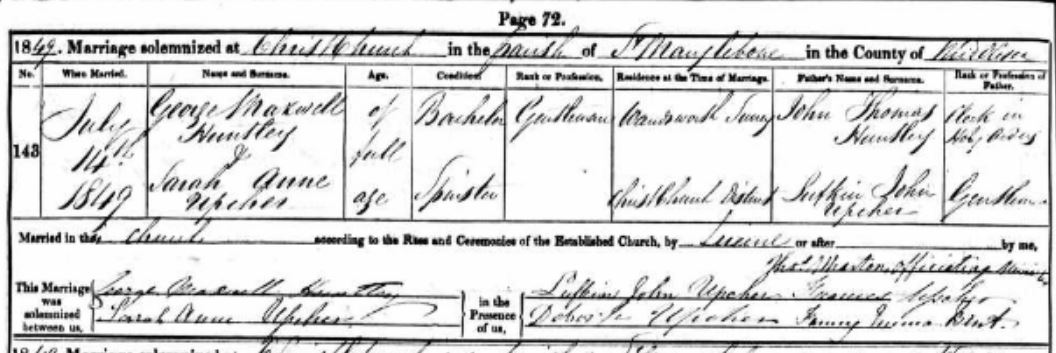 Page 72.
1849. Marriage solemnized at Christ Church in the parish of St Marylebone in the County of Middlesex
No. When Married. Name and Surname. Age. Condition. Rank or Profession. Residence at the Time of Marriage. Father's Name and Surname. Rank or Profession of Father.
143 July 14th 1849 George Maxwell Huntley of full age Bachelor Gentleman Wandsworth Surrey John Thomas Huntley Clerk in Holy Orders
& Sarah Anne Upcher Spinster Christ Church District Lufkin John Upcher Gentleman
Married in the Church according to the Rites and Ceremonies of the Established Church, by Licence or after by me,
Thos. officiating Minister
This Marriage was solemnized between us, George Maxwell Huntley in the Presence of us, Lufkin John Upcher Frances Upcher
Sarah Anne Upcher Upcher Fanny Emma
1849. Marriage solemnized at